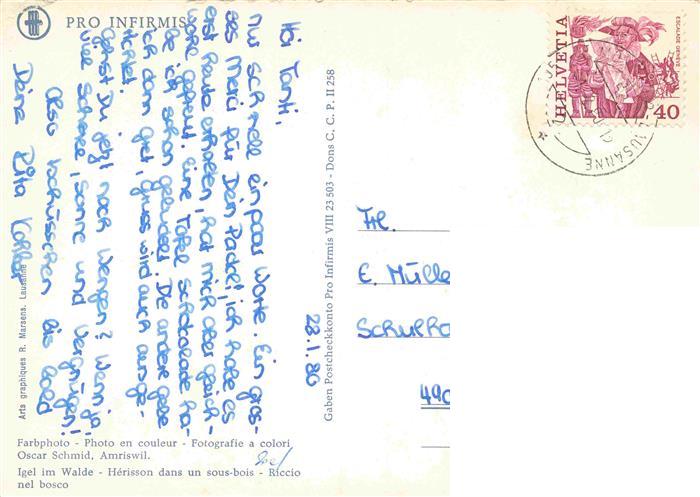 PRO INFIRMIS
28.1.80
Hoi Tanti,
Nur schnell ein paar Worte. Ein gros-
ses Merci für Dein Päckli, ich habe es
erst heute erhalten, hat mich aber gleich-
wohl gefreut. Eine Tafel Schokolade ha-
be ich schon geplündert. Die andere gebe
ich dann gut, wird auch ausge-
richtet.
Gehst Du jetzt nach Wengen? Wenn ja
viel Schnee, Sonne und Vergnügen!
Also tschüsschen bis bald
Deine Rita Kohler
Arts graphiques R. Marsens. Lausanne
Farbphoto - Photo en couleur - Fotografie a colori
Oscar Schmid, Amriswil.
Igel im Walde - Hérisson dans un sous-bois - Riccio
nel bosco
Gaben Postcheckkonto Pro Infirmis VIII 23 503 - Dons C. C. P. II 258
HELVETIA
ESCALADE GENÈVE
40
LAUSANNE
Frl.
E. Mülle
490